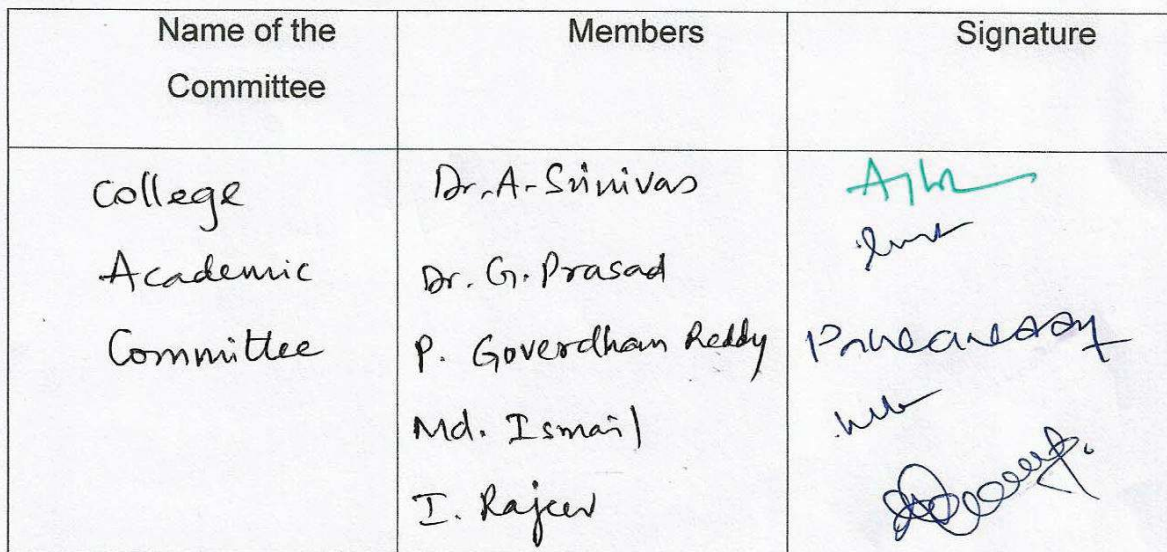 Name of the
Committee
Members
Signature
College
Academic
Committee
Dr. A. Srinivas
Dr. G. Prasad
P. Goverdhan Reddy
Md. Ismail
I. Rajeev